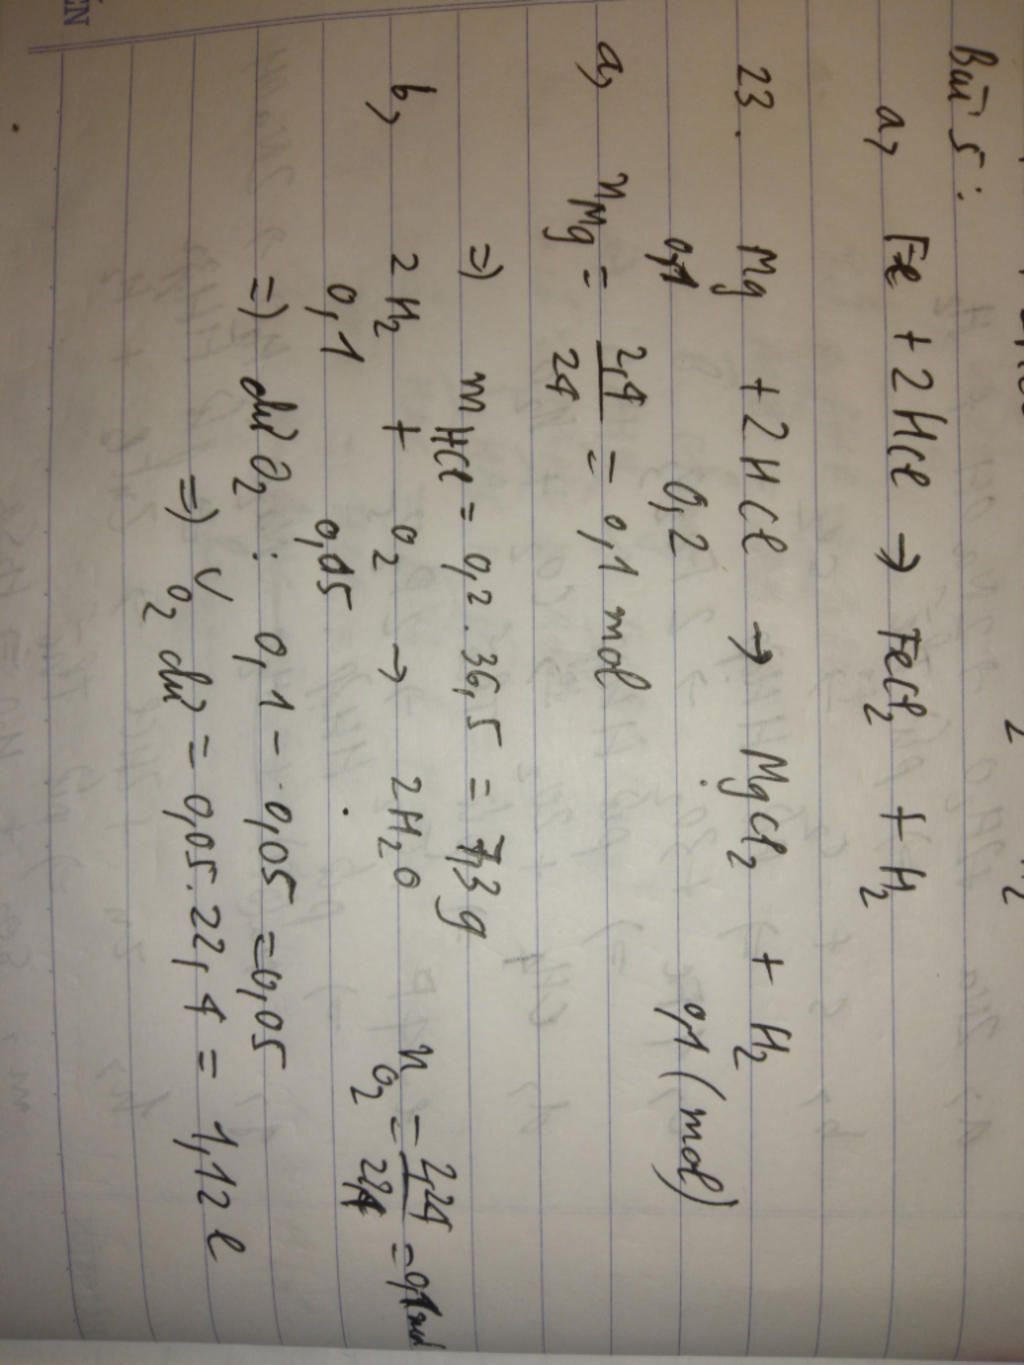 Bài 5:
a, Fe + 2HCl → FeCl2 + H2
23. Mg + 2HCl → MgCl2 + H2
0,1 0,2 0,1 (mol)
a, nMg = 2,4/24 = 0,1 mol
=) mHCl = 0,2 . 36,5 = 7,3g
b, 2H2 + O2 → 2H2O nO2 = 2,24/22,4 = 0,1 mol
0,1 0,05
=) dư O2 : 0,1 - 0,05 = 0,05
=) VO2 dư = 0,05 . 22,4 = 1,12 l